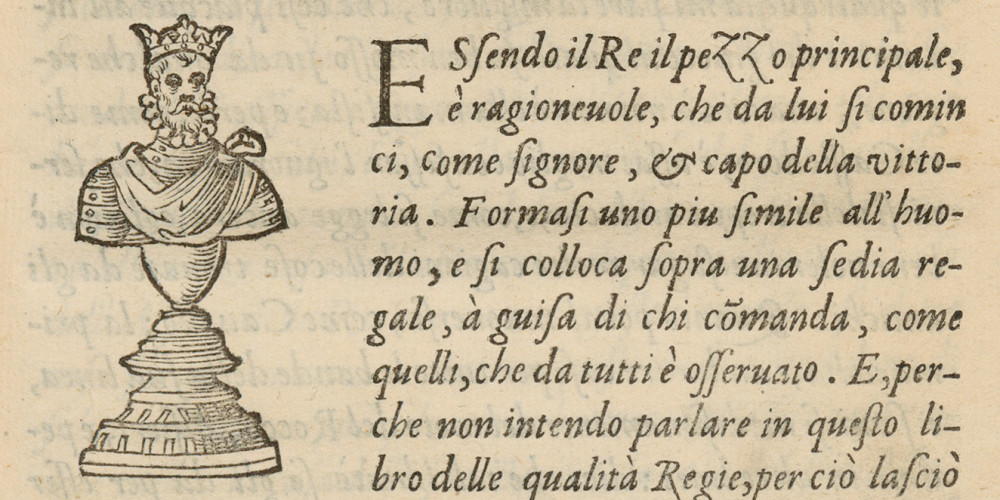 ESſendo il Re il pezzo principale,
è ragioneuole, che da lui ſi comin
ci, come ſignore, & capo della vitto-
ria. Formaſi uno piu ſimile all'huo-
mo, e ſi colloca ſopra una ſedia re-
gale, à guiſa di chi cõmanda, come
quelli, che da tutti è oſſeruato. E, per-
che non intendo parlare in queſto li-
bro delle qualità Regie, per ciò laſciò